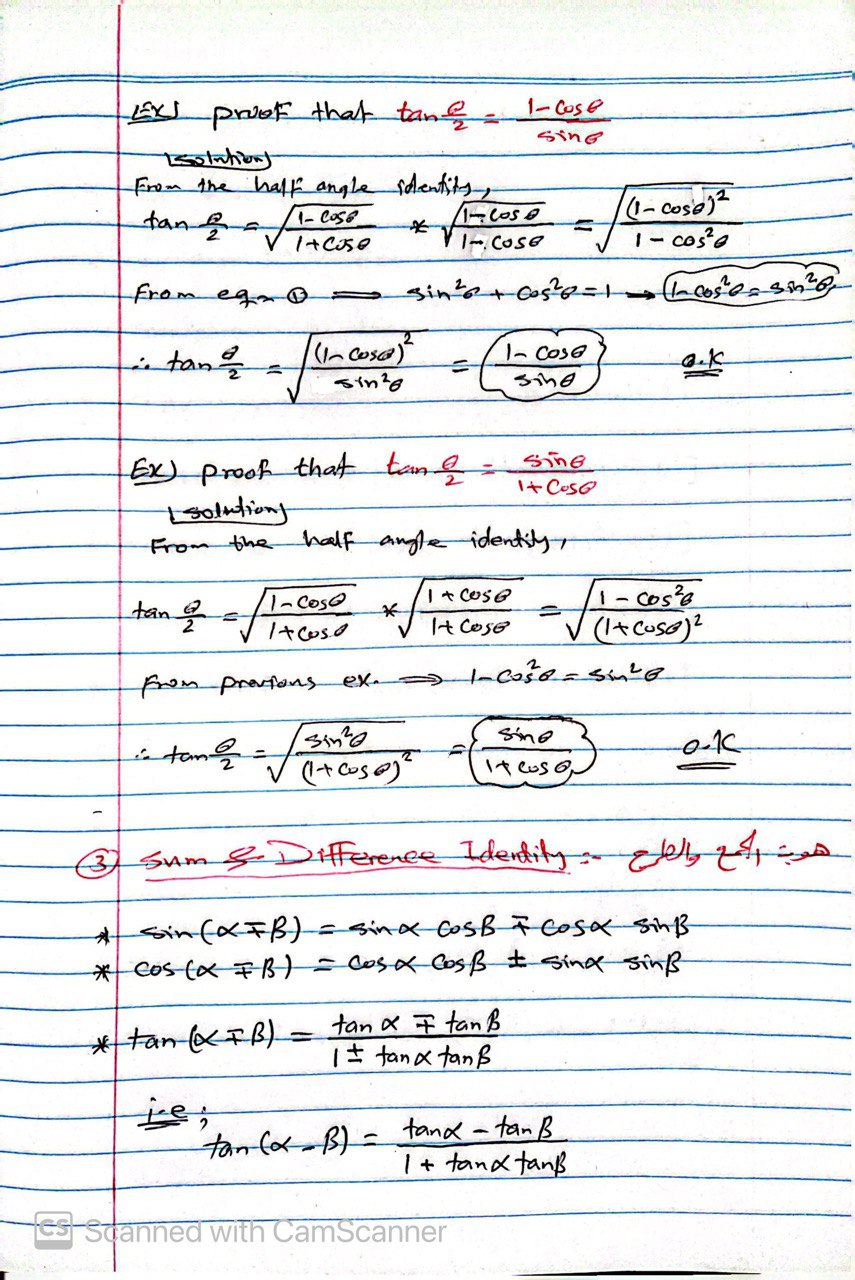 Ex) proof that tan θ/2 = (1-cosθ)/(sinθ)
[solution]
From the half angle identity,
tan θ/2 = √((1-cosθ)/(1+cosθ)) * √((1-cosθ)/(1-cosθ)) = √((1-cosθ)²/(1-cos²θ))
From eqn ① ⟹ sin²θ + cos²θ = 1 → 1-cos²θ = sin²θ
∴ tan θ/2 = √((1-cosθ)²/(sin²θ)) = (1-cosθ)/(sinθ) o.k
Ex) proof that tan θ/2 = (sinθ)/(1+cosθ)
[solution]
From the half angle identity,
tan θ/2 = √((1-cosθ)/(1+cosθ)) * √((1+cosθ)/(1+cosθ)) = √((1-cos²θ)/(1+cosθ)²)
From previous ex. ⟹ 1-cos²θ = sin²θ
∴ tan θ/2 = √((sin²θ)/(1+cosθ)²) = (sinθ)/(1+cosθ) o.k
③ Sum & Difference Identity :- هوية الجمع والطرح
* sin(α∓β) = sinα cosβ ∓ cosα sinβ
* cos(α∓β) = cosα cosβ ± sinα sinβ
* tan(α∓β) = (tanα ∓ tanβ)/(1 ± tanα tanβ)
i.e ;
tan(α-β) = (tanα - tanβ)/(1 + tanα tanβ)
CS Scanned with CamScanner